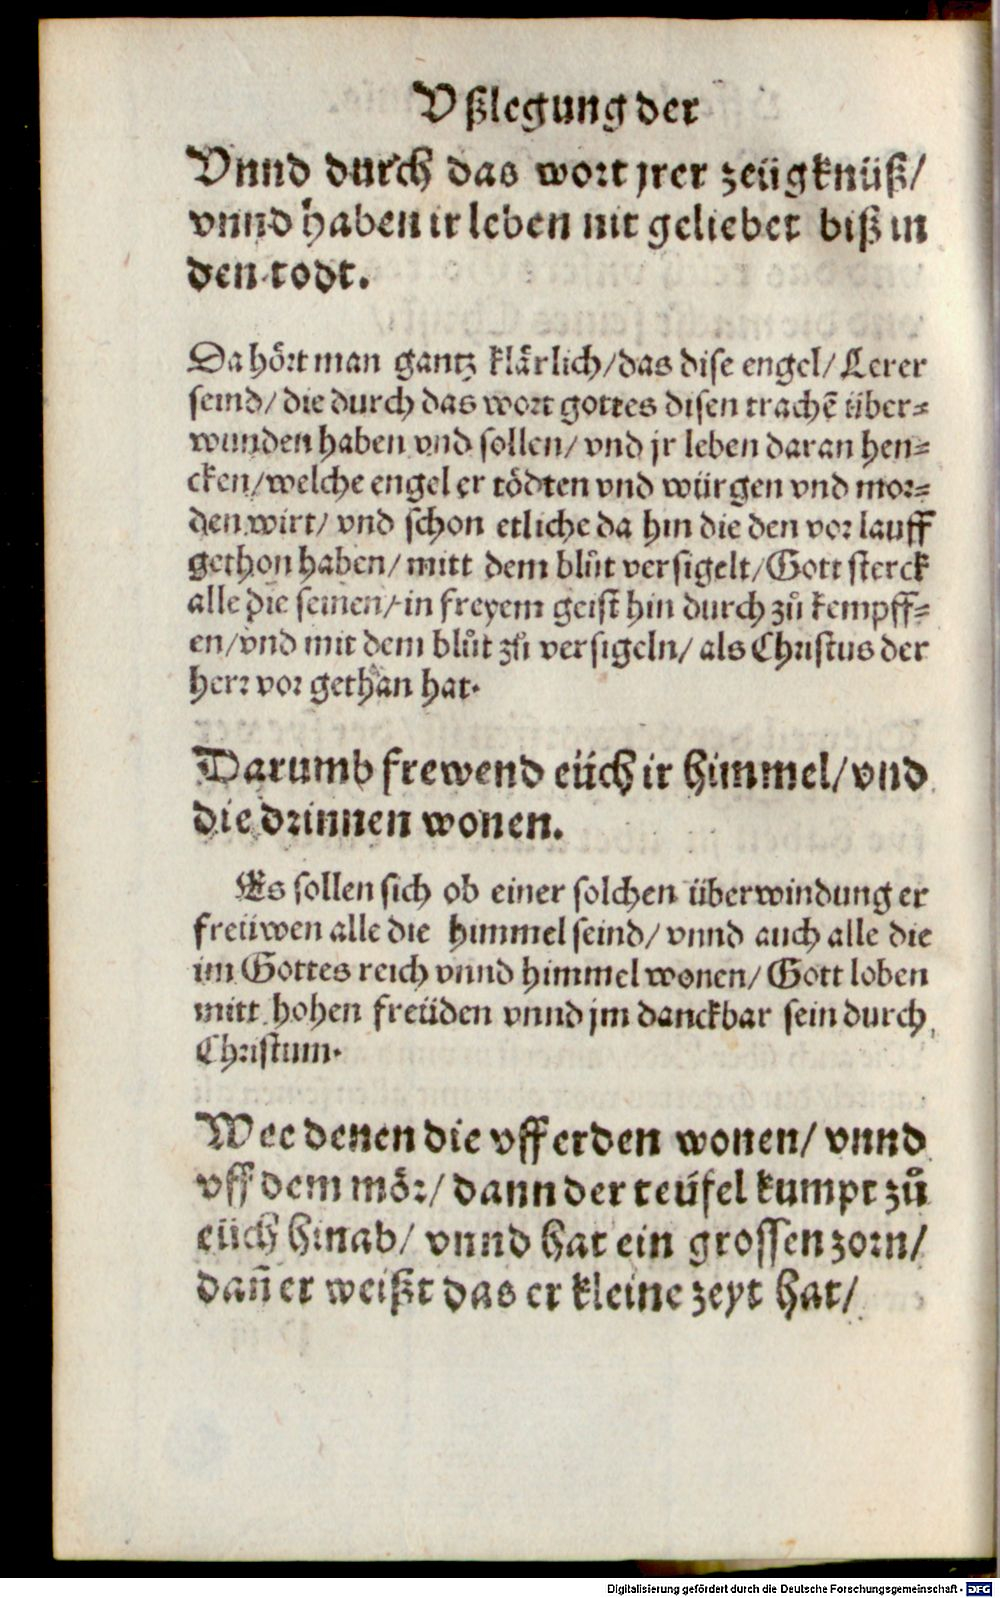 Vßlegung der
Vnnd durch das wort jrer zeügknüß/
vnnd haben ir leben nit geliebet biß in
den todt.
Da hört man gantz klärlich/das dise engel/ Lerer
seind/ die durch das wort gottes disen trachē über⸗
wunden haben vnd sollen/ vnd jr leben daran hen⸗
cken/welche engel er tödten vnd würgen vnd mor⸗
den wirt/ vnd schon etliche da hin die den vor lauff
gethon haben/ mitt dem blůt versigelt/Gott sterck
alle die seinen/ in freyem geist hin durch zů kempff⸗
en/vnd mit dem blůt zů versigeln/ als Christus der
herr vor gethan hat.
Darumb frewend eüch ir himmel/vnd
die drinnen wonen.
Es sollen sich ob einer solchen überwindung er
freüwen alle die himmel seind/ vnnd auch alle die
im Gottes reich vnnd himmel wonen/ Gott loben
mitt hohen freüden vnnd jm danckbar sein durch
Christum.
Wee denen die vff erden wonen/ vnnd
vff dem mör/ dann der teüfel kumpt zů
eüch hinab/ vnnd hat ein grossen zorn/
dañ er weißt das er kleine zeyt hat/
Digitalisierung gefördert durch die Deutsche Forschungsgemeinschaft - DFG